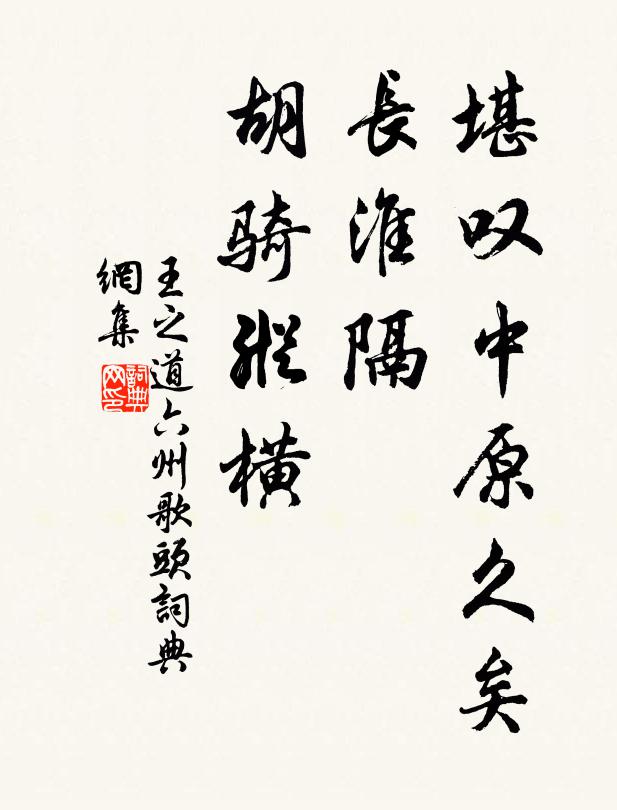 堪叹中原久矣
長淮隔
胡騎縱橫
王之道六州歌頭詞典
網集
詞典
网印